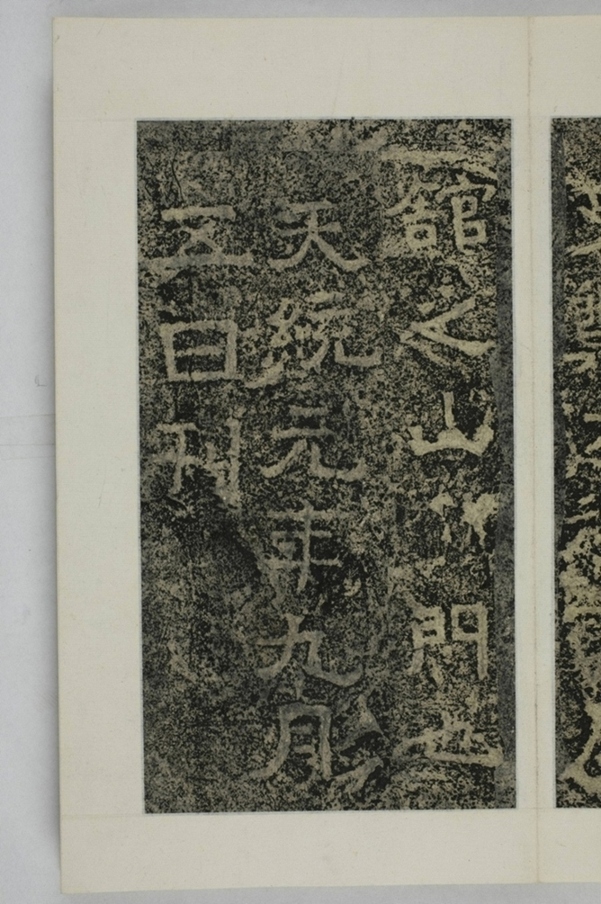 舘之山門也
天統元年九月
五日刊